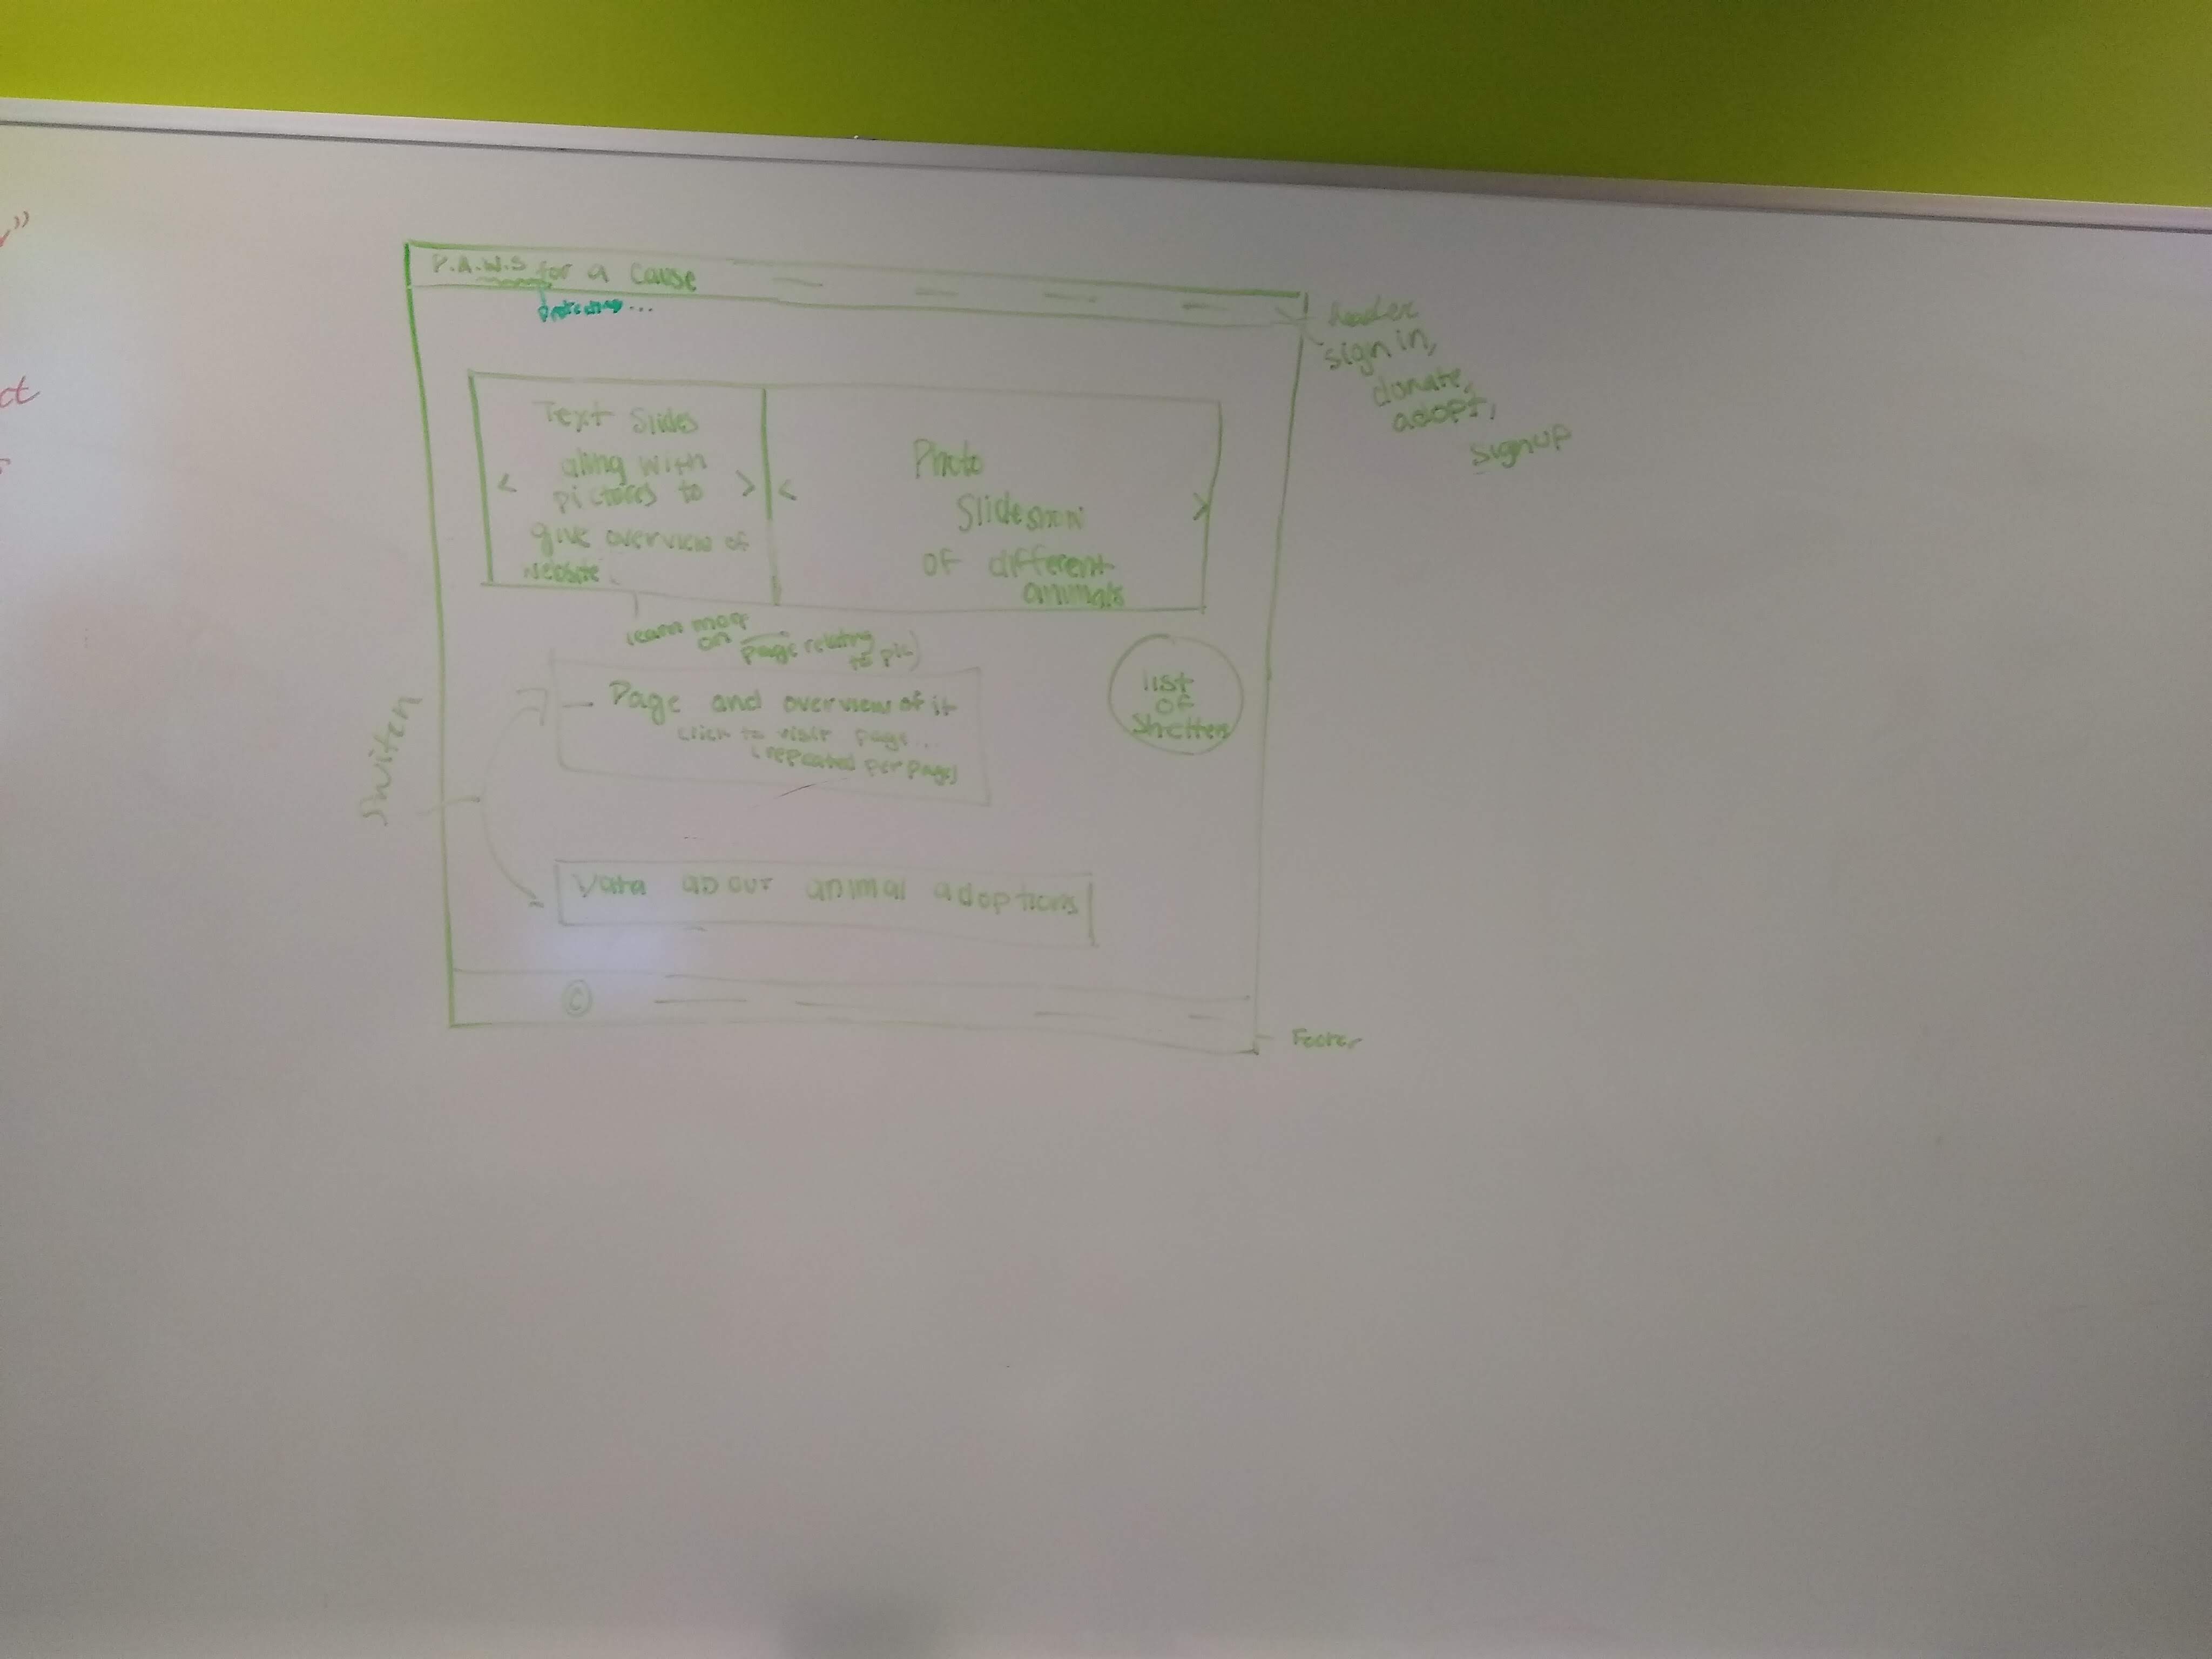 P.A.W.S for a cause
header
sign in,
donate,
adopt,
signup
Text Slides
along with
pictures to
give overview of
website.
< >
< >
Photo
Slideshow
of different
animals
learn more
on page relating
to pic)
Page and overview of it
click to visit page..
(repeated per page)
list
of
Switch
Data about animal adoptions
©
Footer
ct